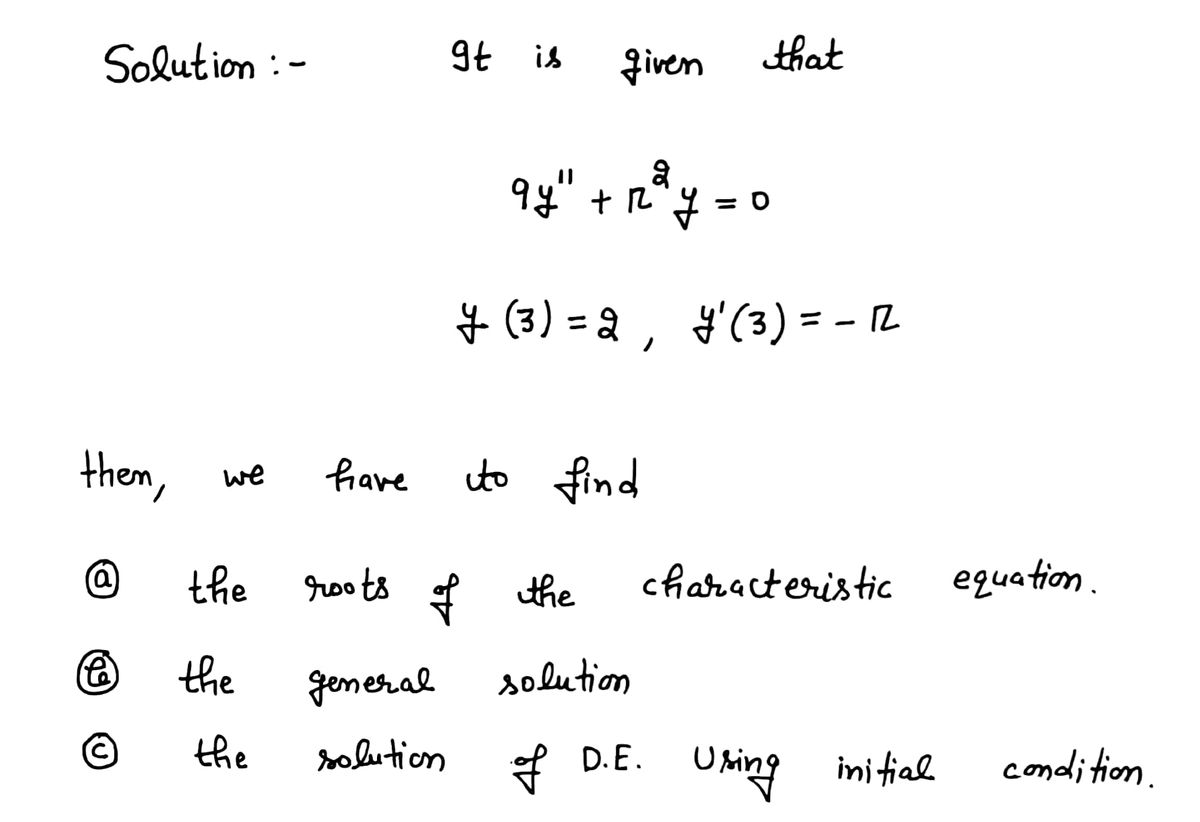 Solution :- It is given that
9y'' + π²y = 0
y (3) = 2 , y'(3) = - π
then, we have to find
ⓐ the roots of the characteristic equation.
ⓑ the general solution
ⓒ the solution of D.E. Using initial condition.